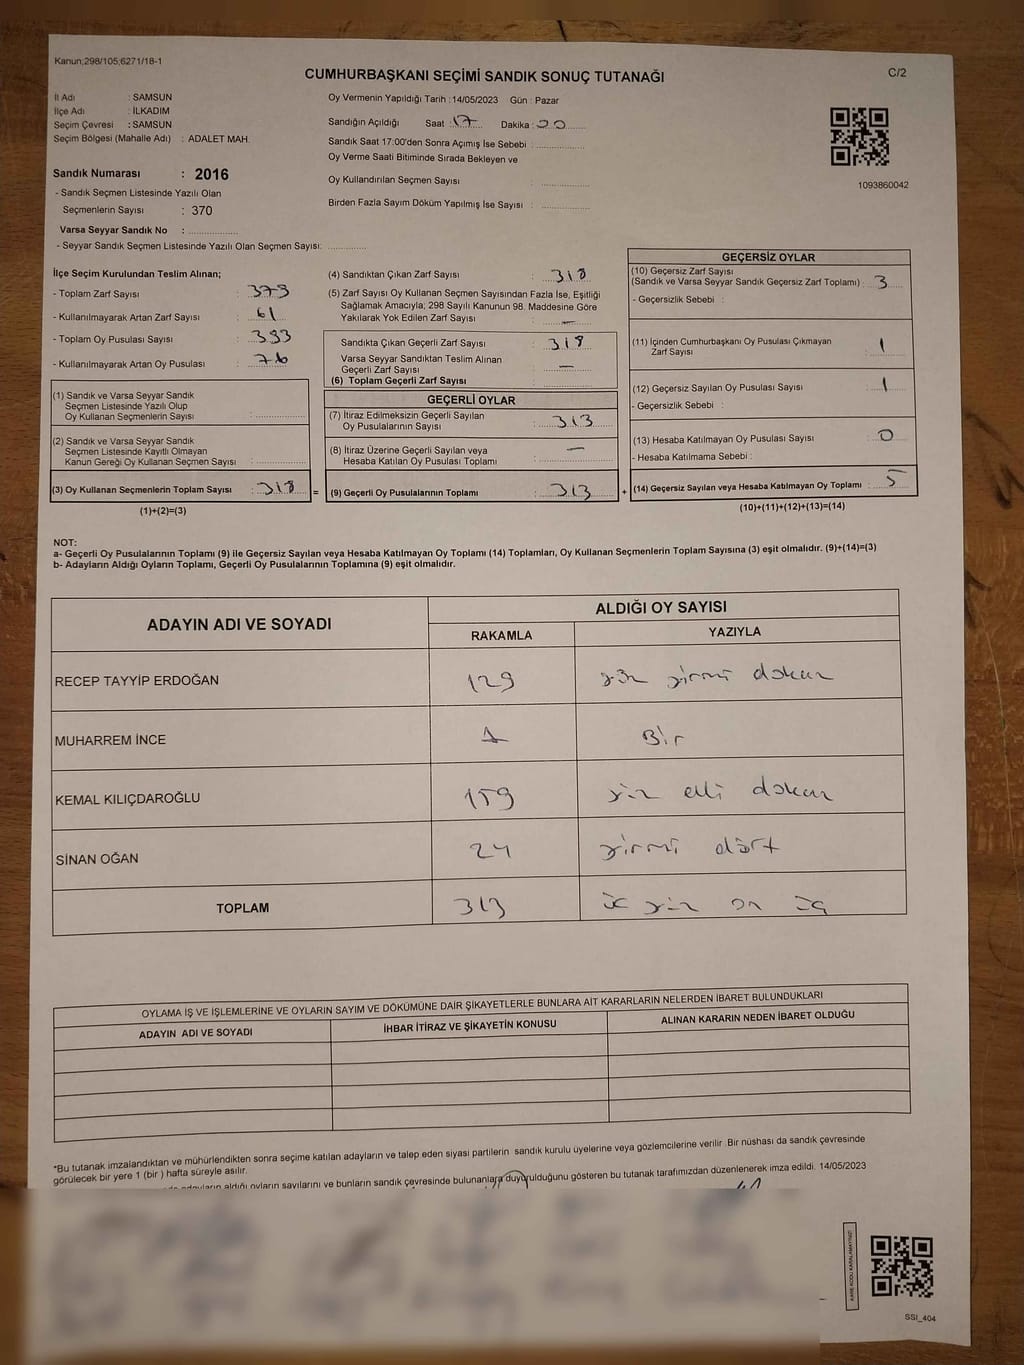 Kanun;298/105;6271/18-1
CUMHURBAŞKANI SEÇİMİ SANDIK SONUÇ TUTANAĞI
C/2
İl Adı : SAMSUN
İlçe Adı : İLKADIM
Seçim Çevresi : SAMSUN
Seçim Bölgesi (Mahalle Adı) : ADALET MAH.
Sandık Numarası : 2016
- Sandık Seçmen Listesinde Yazılı Olan
Seçmenlerin Sayısı : 370
Varsa Seyyar Sandık No :
- Seyyar Sandık Seçmen Listesinde Yazılı Olan Seçmen Sayısı:
Oy Vermenin Yapıldığı Tarih : 14/05/2023 Gün : Pazar
Sandığın Açıldığı Saat : 17 Dakika : 00
Sandık Saat 17:00'den Sonra Açımış İse Sebebi :
Oy Verme Saati Bitiminde Sırada Bekleyen ve
Oy Kullandırılan Seçmen Sayısı :
Birden Fazla Sayım Döküm Yapılmış İse Sayısı :
1093860042
İlçe Seçim Kurulundan Teslim Alınan;
- Toplam Zarf Sayısı : 379
- Kullanılmayarak Artan Zarf Sayısı : 61
- Toplam Oy Pusulası Sayısı : 393
- Kullanılmayarak Artan Oy Pusulası : 76
(1) Sandık ve Varsa Seyyar Sandık
Seçmen Listesinde Yazılı Olup
Oy Kullanan Seçmenlerin Sayısı :
(2) Sandık ve Varsa Seyyar Sandık
Seçmen Listesinde Kayıtlı Olmayan
Kanun Gereği Oy Kullanan Seçmen Sayısı :
(3) Oy Kullanan Seçmenlerin Toplam Sayısı : 318
(1)+(2)=(3)
(4) Sandıktan Çıkan Zarf Sayısı : 318
(5) Zarf Sayısı Oy Kullanan Seçmen Sayısından Fazla İse, Eşitliği
Sağlamak Amacıyla; 298 Sayılı Kanunun 98. Maddesine Göre
Yakılarak Yok Edilen Zarf Sayısı : —
Sandıkta Çıkan Geçerli Zarf Sayısı : 318
Varsa Seyyar Sandıktan Teslim Alınan
Geçerli Zarf Sayısı : —
(6) Toplam Geçerli Zarf Sayısı :
GEÇERLİ OYLAR
(7) İtiraz Edilmeksizin Geçerli Sayılan
Oy Pusulalarının Sayısı : 313
(8) İtiraz Üzerine Geçerli Sayılan veya
Hesaba Katılan Oy Pusulası Toplamı : —
= (9) Geçerli Oy Pusulalarının Toplamı : 313 +
GEÇERSİZ OYLAR
(10) Geçersiz Zarf Sayısı
(Sandık ve Varsa Seyyar Sandık Geçersiz Zarf Toplamı) : 3
- Geçersizlik Sebebi :
(11) İçinden Cumhurbaşkanı Oy Pusulası Çıkmayan
Zarf Sayısı : 1
(12) Geçersiz Sayılan Oy Pusulası Sayısı : 1
- Geçersizlik Sebebi :
(13) Hesaba Katılmayan Oy Pusulası Sayısı : 0
- Hesaba Katılmama Sebebi :
(14) Geçersiz Sayılan veya Hesaba Katılmayan Oy Toplamı : 5
(10)+(11)+(12)+(13)=(14)
NOT:
a- Geçerli Oy Pusulalarının Toplamı (9) ile Geçersiz Sayılan veya Hesaba Katılmayan Oy Toplamı (14) Toplamları, Oy Kullanan Seçmenlerin Toplam Sayısına (3) eşit olmalıdır. (9)+(14)=(3)
b- Adayların Aldığı Oyların Toplamı, Geçerli Oy Pusulalarının Toplamına (9) eşit olmalıdır.
ADAYIN ADI VE SOYADI
ALDIĞI OY SAYISI
RAKAMLA YAZIYLA
RECEP TAYYİP ERDOĞAN 129 yüz yirmi dokuz
MUHARREM İNCE 1 Bir
KEMAL KILIÇDAROĞLU 159 yüz elli dokuz
SİNAN OĞAN 24 yirmi dört
TOPLAM 313 üç yüz on üç
OYLAMA İŞ VE İŞLEMLERİNE VE OYLARIN SAYIM VE DÖKÜMÜNE DAİR ŞİKAYETLERLE BUNLARA AİT KARARLARIN NELERDEN İBARET BULUNDUKLARI
ADAYIN ADI VE SOYADI İHBAR İTİRAZ VE ŞİKAYETİN KONUSU ALINAN KARARIN NEDEN İBARET OLDUĞU
*Bu tutanak imzalandıktan ve mühürlendikten sonra seçime katılan adayların ve talep eden siyasi partilerin sandık kurulu üyelerine veya gözlemcilerine verilir. Bir nüshası da sandık çevresinde
görülecek bir yere 1 (bir ) hafta süreyle asılır.
adayların aldığı oyların sayılarını ve bunların sandık çevresinde bulunanlara duyurulduğunu gösteren bu tutanak tarafımızdan düzenlenerek imza edildi. 14/05/2023
KARE KODU KARALAMAYINIZ!
SSI_404